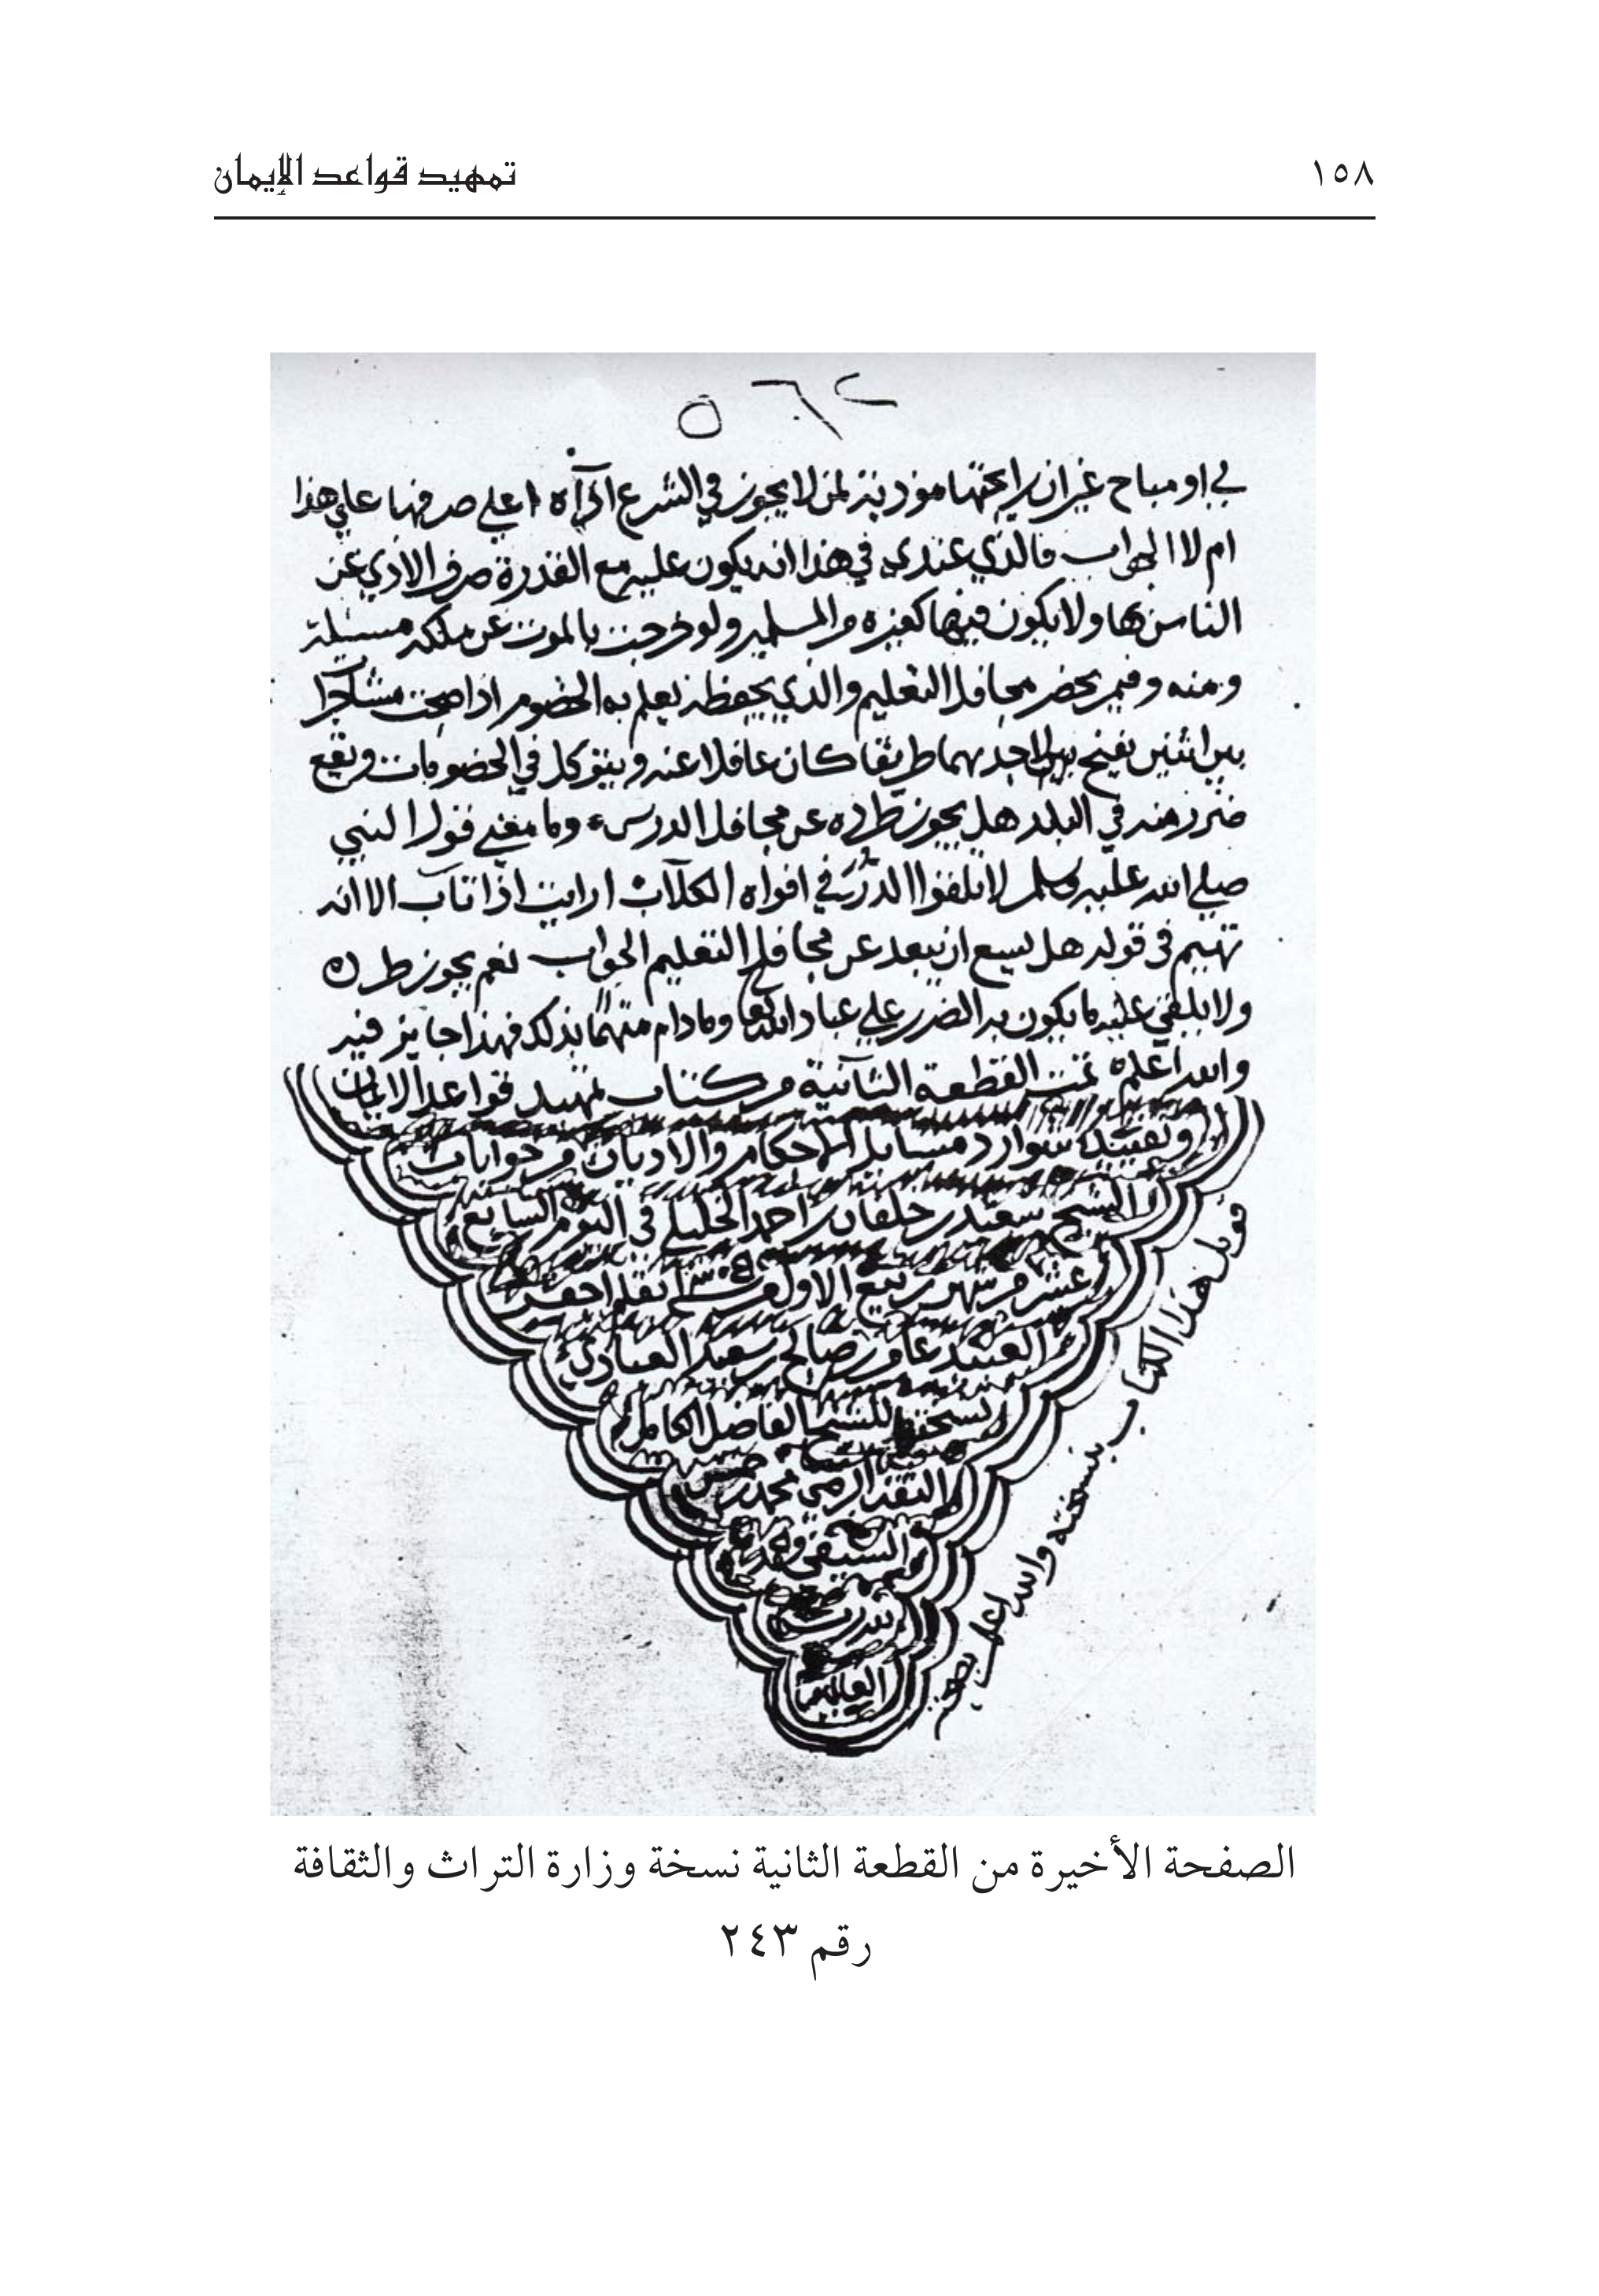 ١٥٨
تمهيد قواعد الإيمان
٥٦٢
او مباح غير ان رايحتها موذية لمن لا يجوز في الشرع اعلي صرفها علي هذا
ام لا الجواب فالذي عندي في هذا انه يكون عليه مع القدرة صرف الاذي عن
الناس بها ولا يكون فيها كغيره من المسلمين ولو خرجت بالموت عن ملكه مسئلة
ومنه وفيمن يحضر محافل التعليم والذي يحفظه يعلم به الخصوم اذا صحت مشاجرا
بين اثنين يفتح لاحدهما طريقا كان غافلا عنه ويتوكل في الخصومات ويقع
ضرر منه في البلد هل يجوز طرده عن محافل الدرس وما معني قول النبي
صلي الله عليه وسلم لا تلقوا الدرر في افواه الكلاب ارايت اذا تاب الا انه
تهيم في قوله هل يسع ان يبعد عن محافل التعليم الجواب نعم يجوز طرده
ولا يلقي عليه ما يكون به الضرر علي عباد الله وما دام متهما بذلك فهذا جايز فيه
والله اعلم تمت القطعة الثانية من كتاب تمهيد قواعد الايمان
وتقييد شوارد مسائل الاحكام والاديان من جوابات
الشيخ سعيد بن خلفان بن احمد الخليلي في اليوم السابع
عشر من شهر ربيع الاول نقله احقر
العبيد عامر بن صالح بن سعيد العبادي
نسخته للشيخ الفاضل الكامل
الثقة الرضي محمد بن خميس
السيفي
لله رب
العالمين
قوبل هذا الكتاب بنسخته والله اعلم
الصفحة الأخيرة من القطعة الثانية نسخة وزارة التراث والثقافة
رقم ٢٤٣